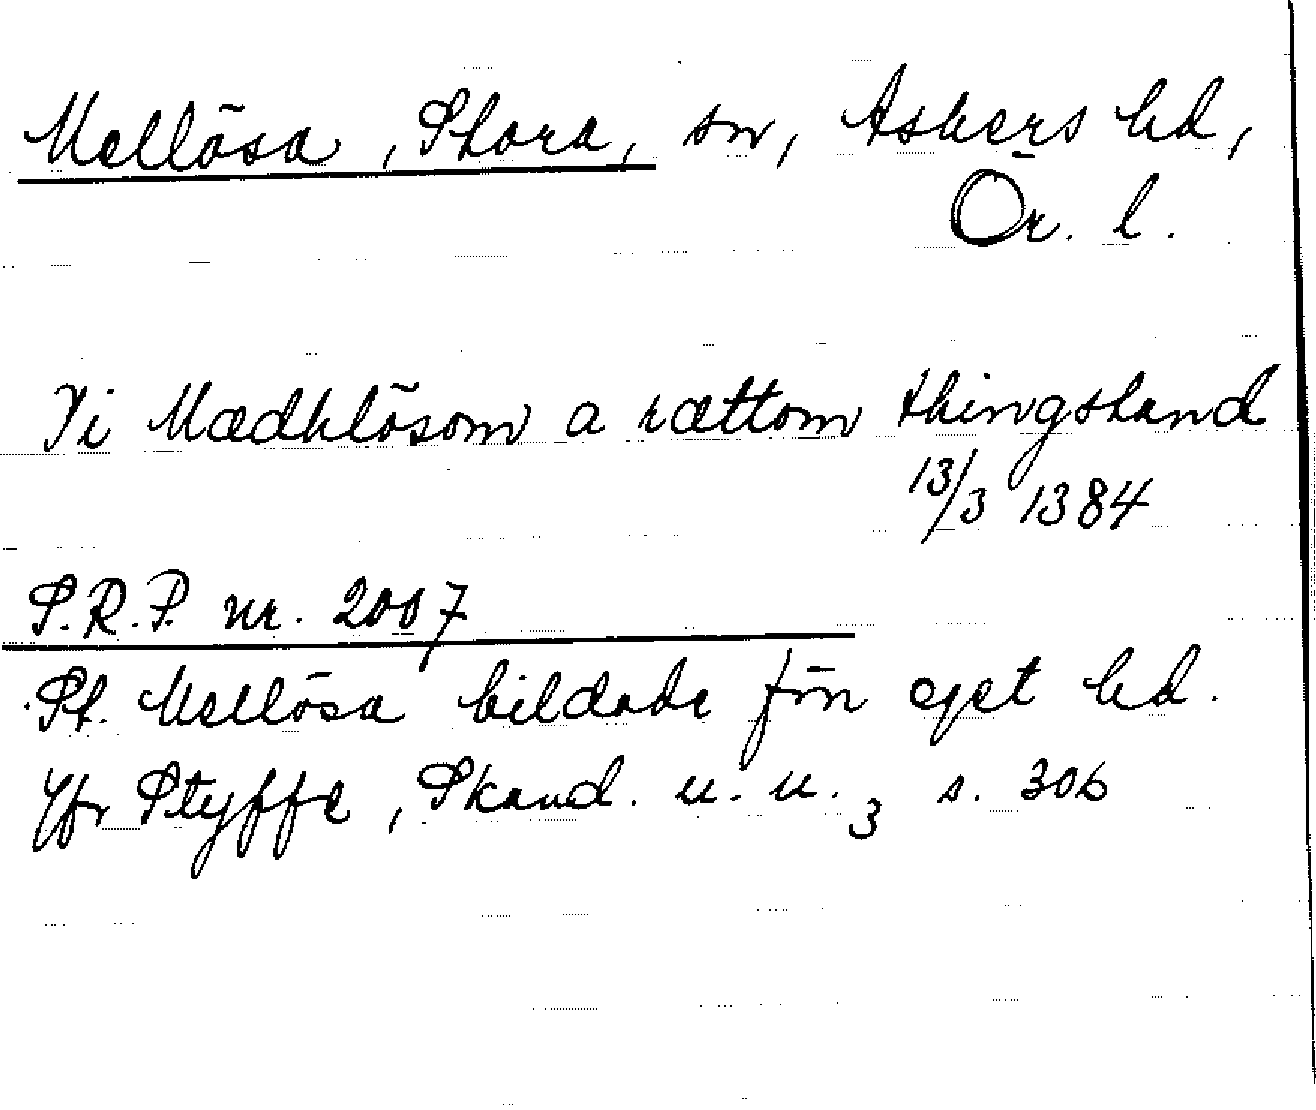 Mellösa, Stora, sn, Askers hd,
Ör. l.
Vi Mædhlösom a rættom thingstand
13/3 1384
S.R.P. nr. 2007
St. Mellösa bildade förr eget hd.
Jfr Styffe, Skand. u. u. 3 s. 306